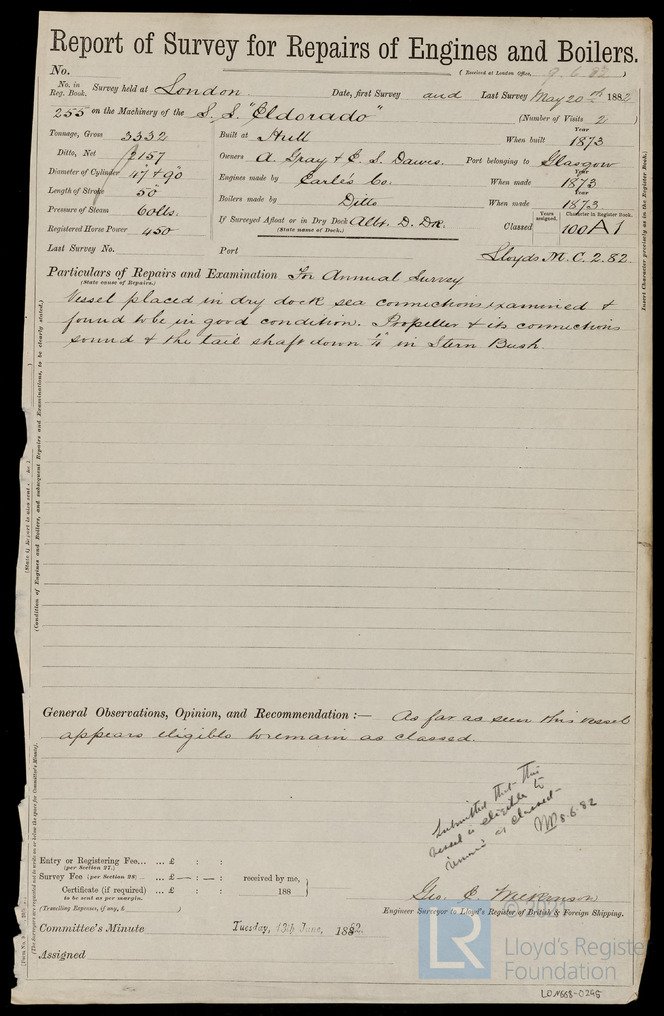 Report of Survey for Repairs of Engines and Boilers.
No. (Received at London Office, 9.6.82)
No. in Reg. Book. Survey held at London Date, first Survey and Last Survey May 20th 1882
255 on the Machinery of the S.S. "Eldorado" (Number of Visits 2)
Tonnage, Gross 3332 Built at Hull When built Year 1873
Ditto, Net 2157 Owners A. Gray & E. S. Dawes. Port belonging to Glasgow
Diameter of Cylinder 47" + 90" Engines made by Earle's Co. When made Year 1873
Length of Stroke 50" Boilers made by Ditto When made Year 1873
Pressure of Steam 60lbs. If Surveyed Afloat or in Dry Dock Albt. D. Dk. Classed Years assigned. Character in Register Book. 100A1
(State name of Dock.)
Registered Horse Power 450
Last Survey No. Port Lloyds M.C. 2.82.
Particulars of Repairs and Examination For Annual Survey
(State cause of Repairs.)
Vessel placed in dry dock sea connections examined &
found to be in good condition. Propeller & its connections
sound & the tail shaft down 1/4" in Stern Bush.
General Observations, Opinion, and Recommendation :— As far as seen this vessel
appears eligible to remain as classed.
Submitted that this
vessel is eligible to
remain as classed
8.6.82
Entry or Registering Fee... ... £ : :
(per Section 27.)
Survey Fee (per Section 28) ... ... £ — : — : received by me,
Certificate (if required) ... £ : : 188
to be sent as per margin.
(Travelling Expenses, if any, £ )
Geo. C.
Engineer Surveyor to Lloyd's Register of British & Foreign Shipping.
Committee's Minute Tuesday, 13th June, 1882.
Assigned
(Condition of Engines and Boilers, and subsequent Repairs and Examinations, to be clearly stated.)
Insert Character precisely as in the Register Book.
LR
© 2021
Lloyd's Register
Foundation
LON668-0295